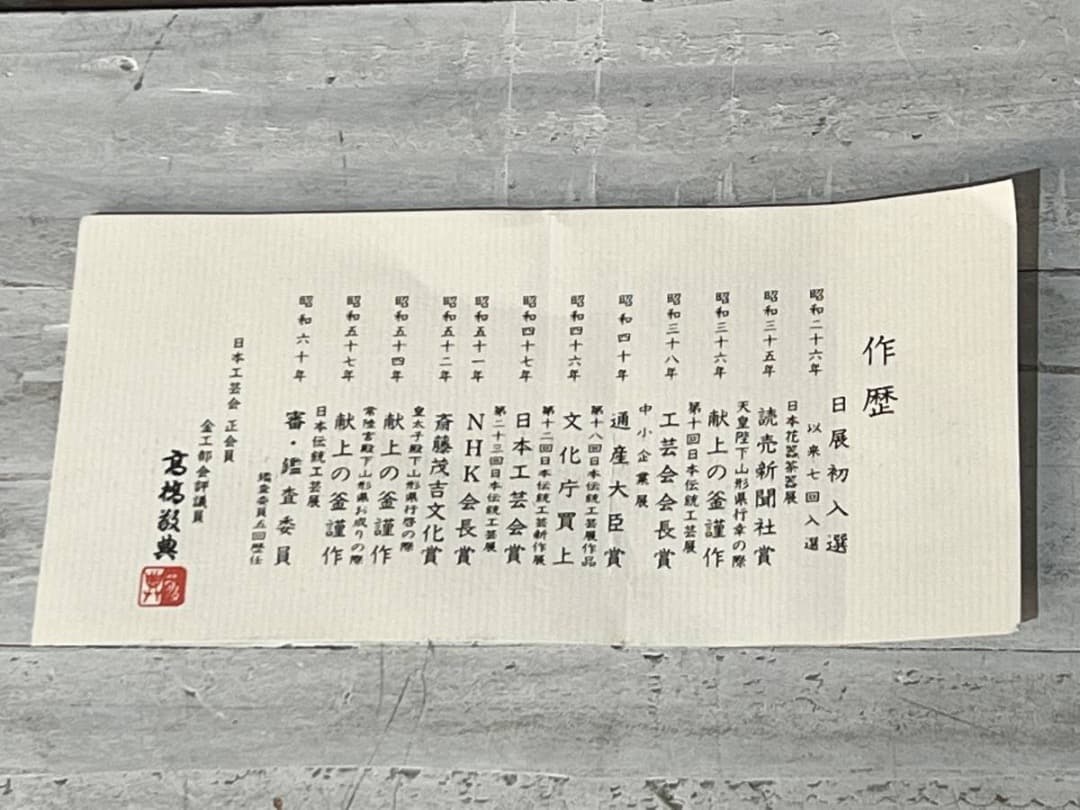 作歴
昭和二十六年
日展初入選
以来七回入選
昭和三十五年
日本花器茶器展
読売新聞社賞
昭和三十六年
天皇陛下山形県行幸の際
献上の釜謹作
昭和三十八年
第十回日本伝統工芸展
工芸会会長賞
昭和四十年
中小企業展
通産大臣賞
昭和四十六年
第十八回日本伝統工芸展作品
文化庁買上
昭和四十七年
第十二回日本伝統工芸新作展
日本工芸会賞
昭和五十一年
第二十三回日本伝統工芸展
NHK会長賞
昭和五十二年
斎藤茂吉文化賞
昭和五十四年
皇太子殿下山形県行啓の際
献上の釜謹作
昭和五十七年
常陸宮殿下山形県お成りの際
献上の釜謹作
昭和六十年
日本伝統工芸展
審・鑑査委員
鑑査委員五回歴任
日本工芸会 正会員
金工部会評議員
高橋敬典